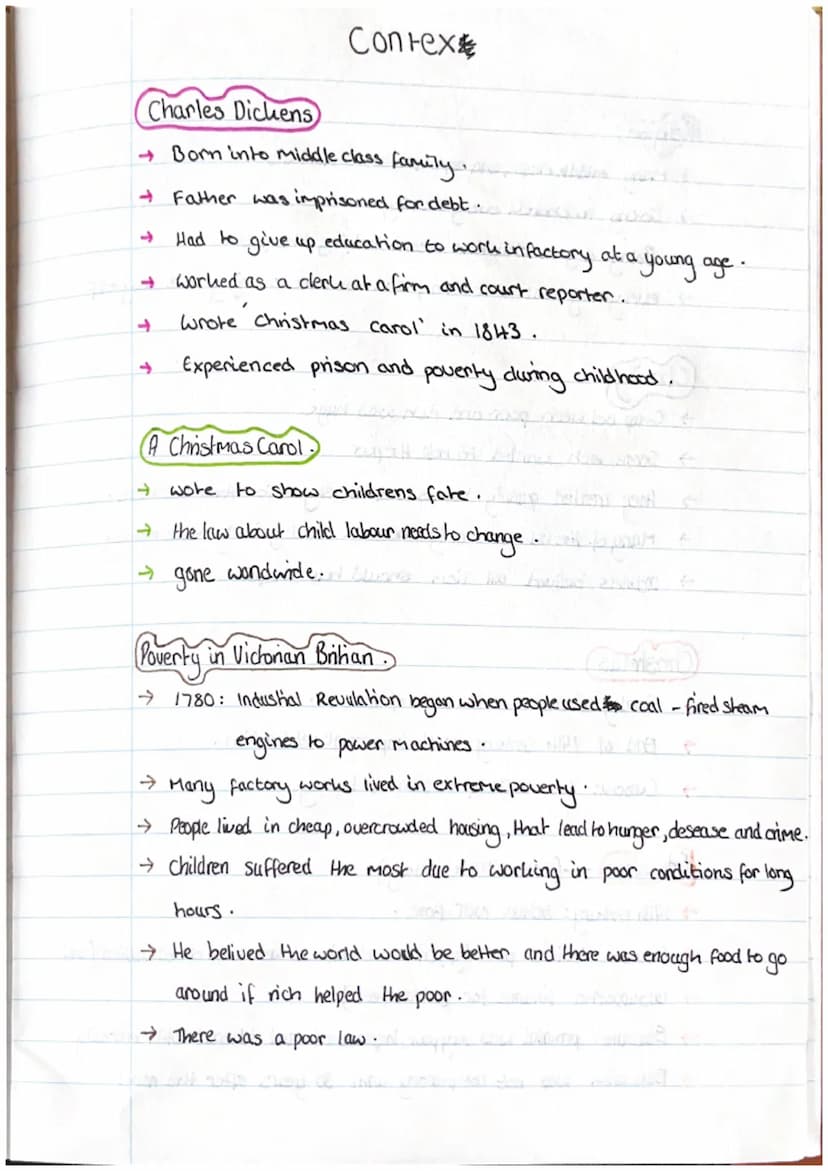 Context
Charles Dickens
→ Born into middle class family.
→ Father was imprisoned for debt.
→ Had to give up education to work in factory at a young age.
→ worked as a clerk at a firm and court reporter.
→ wrote 'christmas carol' in 1843.
→ Experienced prison and poverty during childhood.
A Christmas Carol.
→ wote to show childrens fate.
→ the law about child labour needs to change.
→ gone worldwide.
Poverty in Victorian Britian.
→ 1780: Industrial Revulation began when people used coal-fired steam
engines to power machines.
→ Many factory works lived in extreme poverty.
→ People lived in cheap, overcrowded housing, that lead to hunger, desease and crime.
→ Children suffered the most due to working in poor conditions for long
hours.
→ He belived the world would be better and there was enough food to go
around if rich helped the poor.
→ There was a poor law.